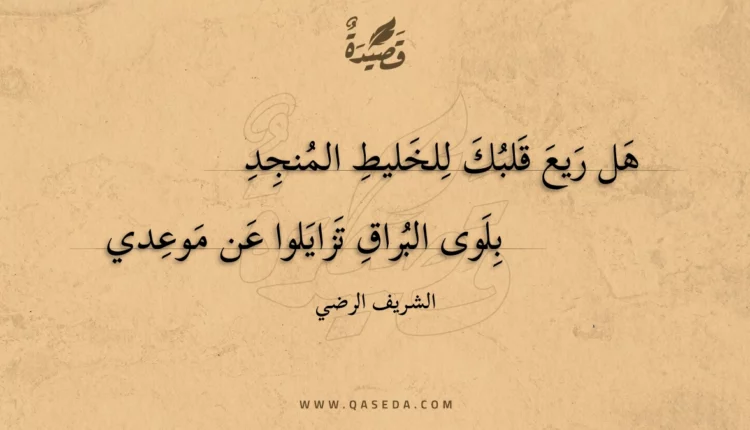 قَصِيْدَةٌ
هَل رَيعَ قَلبُكَ لِلخَليطِ المُنجِدِ
بِلَوى البُراقِ تَزايَلوا عَن مَوعِدي
الشريف الرضي
WWW.QASEDA.COM